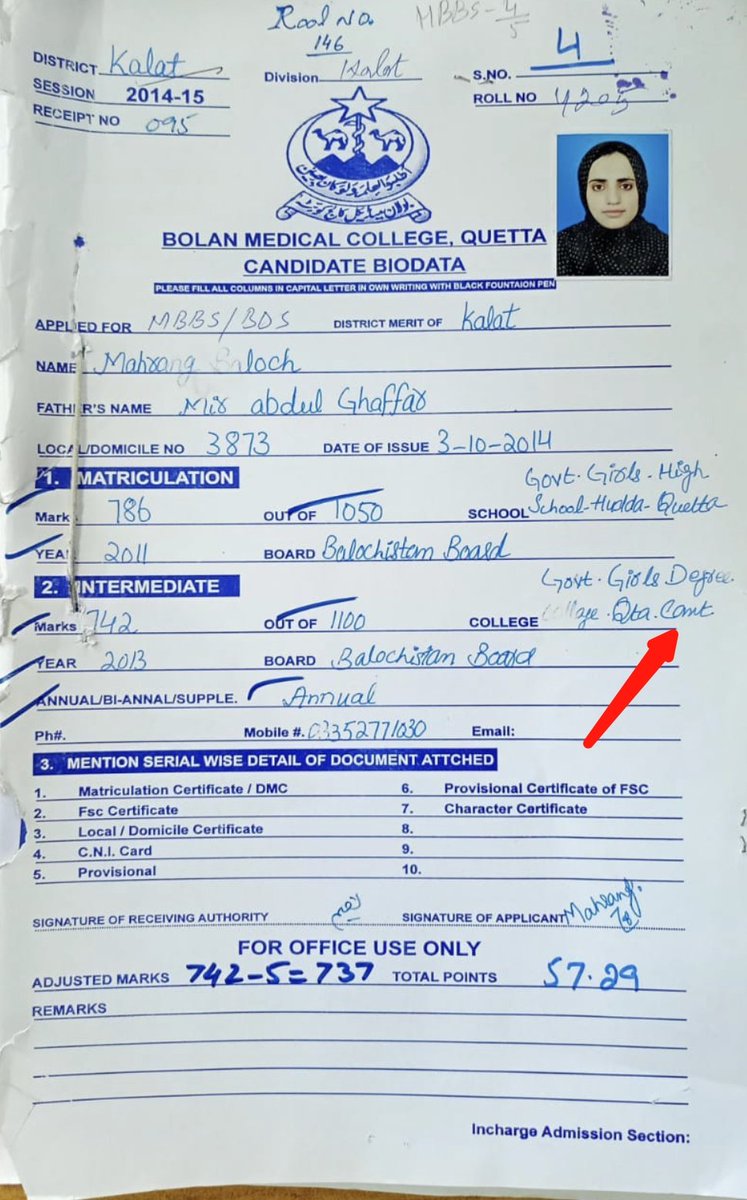 Rool No. MBBS-4/5
146
DISTRICT Kalat
Division Kalat
S.NO. 4
SESSION 2014-15
ROLL NO
RECEIPT NO 095
BOLAN MEDICAL COLLEGE, QUETTA
CANDIDATE BIODATA
PLEASE FILL ALL COLUMNS IN CAPITAL LETTER IN OWN WRITING WITH BLACK FOUNTAION PEN
APPLIED FOR MBBS/BDS DISTRICT MERIT OF Kalat
NAME Mahrang Baloch
FATHER'S NAME Mir abdul Ghaffar
LOCAL/DOMICILE NO 3873 DATE OF ISSUE 3-10-2014
1. MATRICULATION
Govt. Girls. High
Mark 786 OUT OF 1050 SCHOOL School-Hudda-Quetta
YEA 2011 BOARD Balochistam Board
2. INTERMEDIATE
Govt. Girls Degree.
Marks 742 OUT OF 1100 COLLEGE College. Qta. Cant
YEAR 2013 BOARD Balochistan Board
ANNUAL/BI-ANNAL/SUPPLE. Annual
Ph#. Mobile #. 03352771030 Email:
3. MENTION SERIAL WISE DETAIL OF DOCUMENT ATTCHED
1. Matriculation Certificate / DMC 6. Provisional Certificate of FSC
2. Fsc Certificate 7. Character Certificate
3. Local / Domicile Certificate 8.
4. C.N.I. Card 9.
5. Provisional 10.
SIGNATURE OF RECEIVING AUTHORITY SIGNATURE OF APPLICANT Mahrang.
FOR OFFICE USE ONLY
ADJUSTED MARKS 742-5=737 TOTAL POINTS 57.29
REMARKS
Incharge Admission Section: